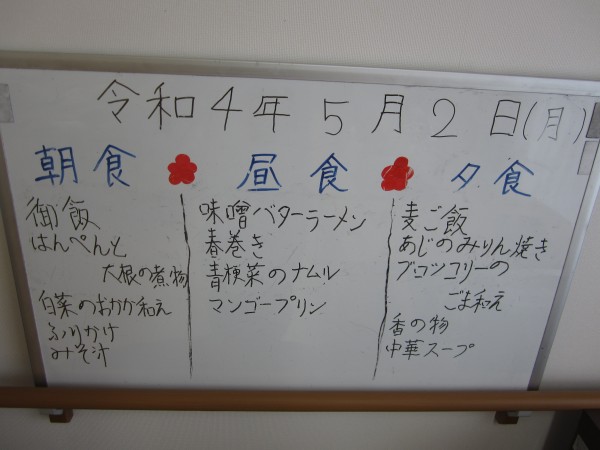 令和4年5月2日(月)
朝食
御飯
はんぺんと
大根の煮物
白菜のおかか和え
ふりかけ
みそ汁
昼食
味噌バターラーメン
春巻き
青梗菜のナムル
マンゴープリン
夕食
麦ご飯
あじのみりん焼き
ブロッコリーの
ごま和え
香の物
中華スープ